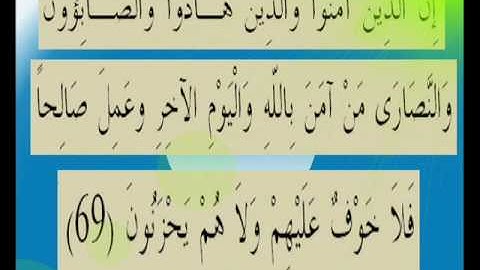 إِنَّ الَّذِينَ آمَنُوا وَالَّذِينَ هَادُوا وَالصَّابِؤُونَ
وَالنَّصَارَى مَنْ آمَنَ بِاللّهِ وَالْيَوْمِ الآخِرِ وعَمِلَ صَالِحاً
فَلاَ خَوْفٌ عَلَيْهِمْ وَلاَ هُمْ يَحْزَنُونَ (69)